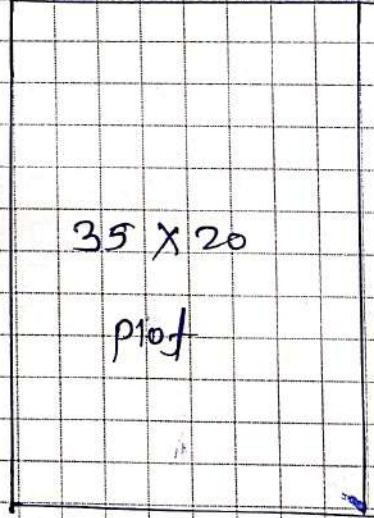 35 X 20
plot